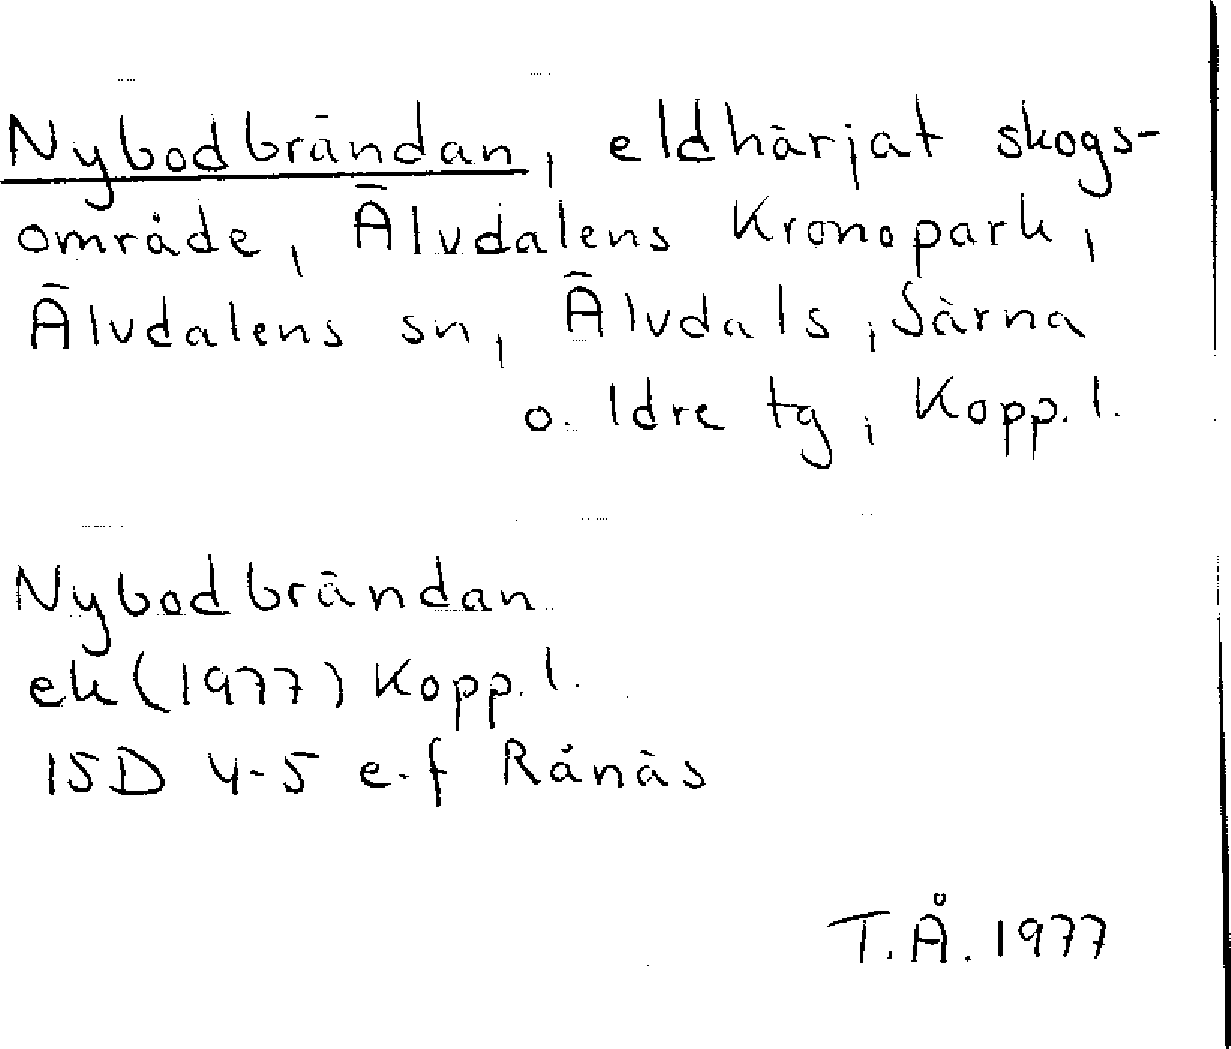 Nybodbrändan, eldhärjat skogs-
område, Älvdalens Kronopark,
Älvdalens sn, Älvdals, Särna
o. Idre tg, Kopp. l.
Nybodbrändan
ek (1977) Kopp. l.
15D 4-5 e-f Rånäs
T.Å. 1977